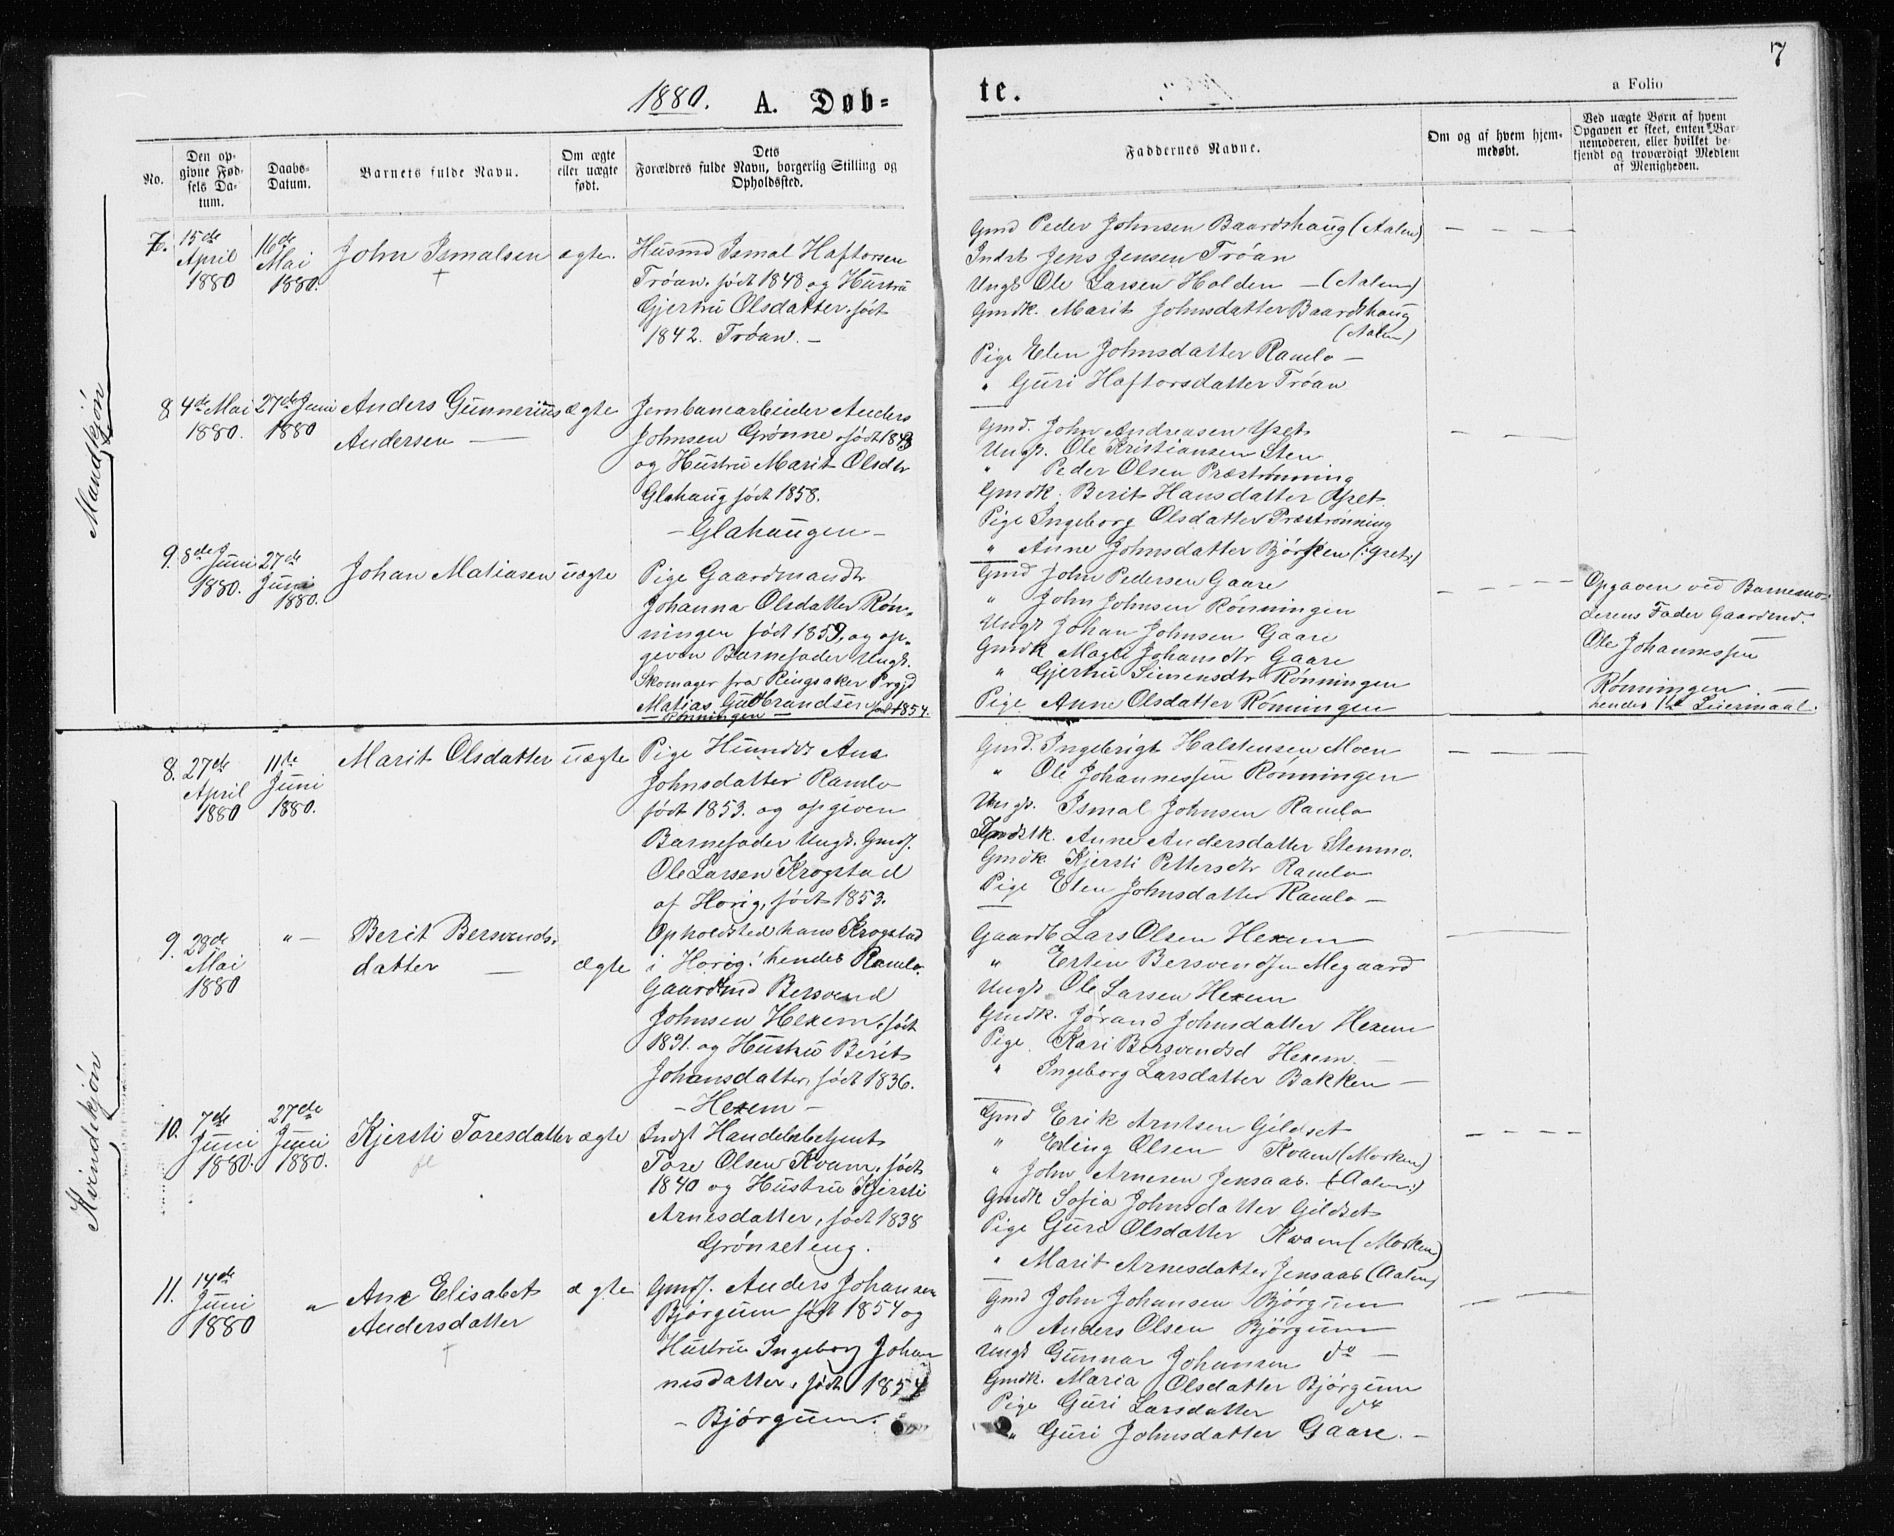 7
1880. A. Døb=
te.
a Folio
No.
Den op-
givne Fød-
sels Da-
tum.
Daabs-
Datum.
Barnets fulde Navn.
Om ægte
eller uægte
født.
Dets
Forældres fulde Navn, borgerlig Stilling og
Opholdssted.
Faddernes Navne.
Om og af hvem hjem-
medøbt.
Ved uægte Børn af hvem
Opgaven er skeet, enten Bar-
nemoderen, eller hvilket be-
kjendt og troværdigt Medlem
af Menigheden.
Mandkjøn
7. 15de April 1880
16de Mai 1880.
John Ismalsen
ægte.
Husmd Ismal Haftorsen
Trøan, født 1848 og Hustru
Gjertru Olsdatter, født
1842. Trøan. —
Gmd Peder Johnsen Baardshaug (Aalen)
Indst Jens Jensen Trøan
Ungk Ole Larsen Holden — (Aalen)
Gmdk. Marit Johnsdatter Baardshaug
(Aalen)
Pige Elen Johnsdatter Ramlo —
" Guri Haftorsdatter Trøan
8 4de Mai 1880.
27de Juni 1880
Anders Gunnerius
Andersen —
ægte
Jernbanearbeider Anders
Johnsen Grønne, født 1843
og Hustru Marit Olsdtr
Glahaug født 1858.
— Glahaugen —
Gmd. John Andreasen Yset
Ungk. Ole Kristiansen Sten
" Peder Olsen Præstrønning
Gmdk. Berit Hansdatter Yset
Pige Ingeborg Olsdatter Præstrønning
" Anne Johnsdatter Bjørken (:Yset:)
9. 8de Juni 1880.
27de Juni 1880.
Johan Matiasen
uægte
Pige Gaardmandtr
Johanna Olsdatter Røn-
ningen født 1859, og op-
given Barnefader Ungk.
Skomager fra Ringsaker Prgjd
Matias Gutbrandsen født 1854.
— Rønningen —
Gmd John Pedersen Gaare
" John Johnsen Rønningen
Ungk Johan Johnsen Gaare
Gmdk Magli Johansdtr Gaare
" Gjertru Simensdtr Rønningen
Pige Anne Olsdatter Rønningen
Opgaven ved Barnemo-
derens Fader Gaardmd.
Ole Johannessen
Rønningen. —
hendes 1ste Leiermaal.
Kvindekjøn
8. 27de April 1880
11de Juni 1880.
Marit Olsdatter
uægte
Pige Ane
Johnsdatter Ramlo
født 1853. og opgiven
Barnefader Ungk. Gmds.
Ole Larsen Krogstad
af Horig, født 1853.
Opholdsted hans Krogstad
i Horig; hendes Ramlo.
Gmd. Ingebrigt Halstensen Moen
" Ole Johannessen Rønningen
Ungk. Ismal Johnsen Ramlo
Indstk. Anne Andersdatter Stenmo.
Gmdk. Kjersti Pettersdtr Ramlo
Pige Elen Johnsdatter Ramlo —
9. 28de Mai 1880
" —
Berit Bersvends-
datter —
ægte
Gaardmd Bersvend
Johnsen Hexem, født
1831. og Hustru Berit
Johansdatter, født 1836.
— Hexem —
Gaardb Lars Olsen Hexem
" Esten Bersvendsn Megaard
Ungk Ole Larsen Hexem
Gmdk. Jørand Johnsdatter Hexem
Pige Kari Bersvendsd Hexem. —
" Ingeborg Larsdatter Bakken —
10. 7de Juni 1880.
27de Juni 1880.
Kjersti Toresdatter
ægte
Indst Handelsbetjent
Tore Olsen Kvam, født
1840 og Hustru Kjersti
Arnesdatter, født 1838
Grønseteng.
Gmd Erik Arntsen Gildset
" Erling Olsen Kvam (Morken)
" John Arnesen Jensaas (Aalen:)
Gmdk Sofia Johnsdatter Gildset
Pige Guri Olsdatter Kvam (Morken)
" Marit Arnesdatter Jensaas (Aalen)
11. 14de Juni 1880
"
Ane Elisabet
Andersdatter
ægte
Gmds. Anders Johansen
Bjørgum født 1854 og
Hustru Ingeborg Johan
nesdatter, født 1854
— Bjørgum.
Gmd John Johansen Bjørgum
" Anders Olsen Bjørgum
Ungk Gunnar Johansen do —
Gmdk. Maria Olsdatter Bjørgum
Pige Guri Larsdatter do
" Guri Johnsdatter Gaare. —